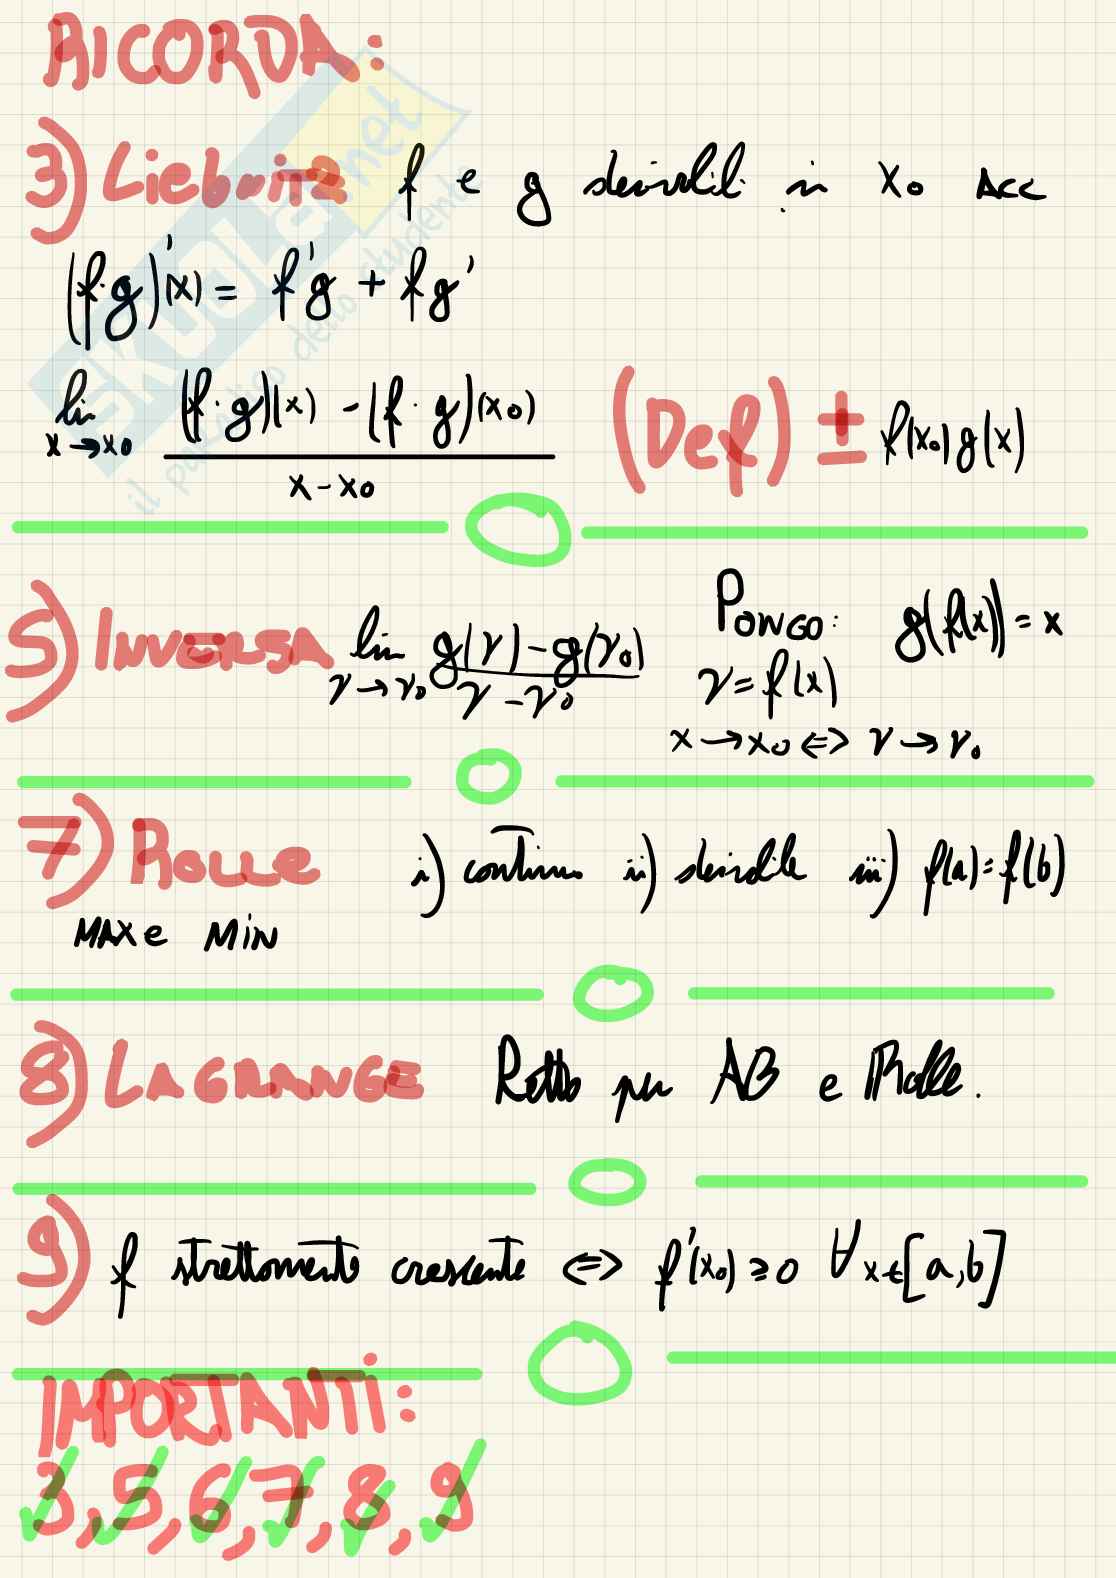 RICORDA:
3) Liebniz f e g derivabili in x₀ Acc
(f·g)'(x) = f'g + fg'
lim x→x₀ (f·g)(x) - (f·g)(x₀) / x-x₀ (Def) ± f(x₀)g(x)
5) INVERSA lim y→y₀ g(y)-g(y₀) / y-y₀ PONGO: g(f(x))=x
y=f(x)
x→x₀ ⇔ y→y₀
7) ROLLE i) continua ii) derivabile iii) f(a)=f(b)
MAX e MiN
8) LAGRANGE Retta per AB e Rolle.
9) f strettamente crescente ⇔ f'(x₀) ≥ 0 ∀x∈[a,b]
IMPORTANTi:
3,5,6,7,8,9
SKUOLA.net
il paradiso dello studente